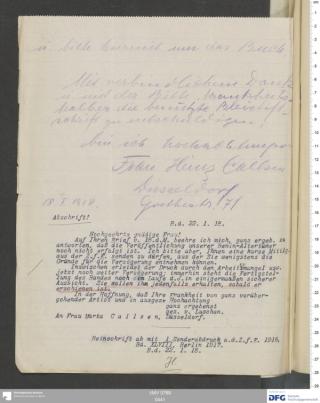 u. bitte hiermit um das Buch
Mit verbindlichem Dank
und der Bitte, krankheits-
halber die benützte Bleistift-
schrift zu entschuldigen!
bin ich hochachtungsvoll
Frau Heinz Callsen
Düsseldorf
18.I.1918. Goethestr. 71
Abschrift!
B.d. 22. 1. 18.
Hochgeehrte gnädige Frau!
Auf Ihren Brief v. 18.d.M. beehre ich mich, ganz ergeb. zu
antworten, daß die Veröffentlichung unserer
noch nicht erfolgt ist. Ich bitte aber, Ihnen eine kurze Mitteilg.
aus der Z.f.E. senden zu dürfen, aus der Sie wenigstens die
Gründe für die Verzögerung entnehmen können.
Inzwischen erleidet der Druck durch den Arbeitsmangel von-
jetzt noch weiter Verzögerung, immerhin steht die Fertigstel-
lung des Bandes noch im Laufe d.J. in einigermaßen sicherer
Aussicht. Sie sollen ihn jedenfalls erhalten, sobald er
erschienen ist.
In der Hoffnung, daß Ihre Krankheit von ganz vorüber-
gehender Art ist und in ausgez. Hochachtung
ganz ergebenst
gez. v. Luschan.
An Frau Marka Callsen, Düsseldorf.
Reinschrift ab mit 1 Sonderdruck a.d.Z.f.E. 1916.
Bd. XLVIII, Berlin 1917.
B.d. 22. 1. 18.
DFG